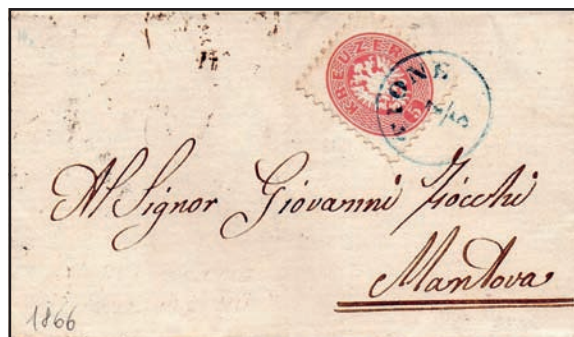 KREUZER
5
Al Signor Giovanni Zocchi
Mantova
1866